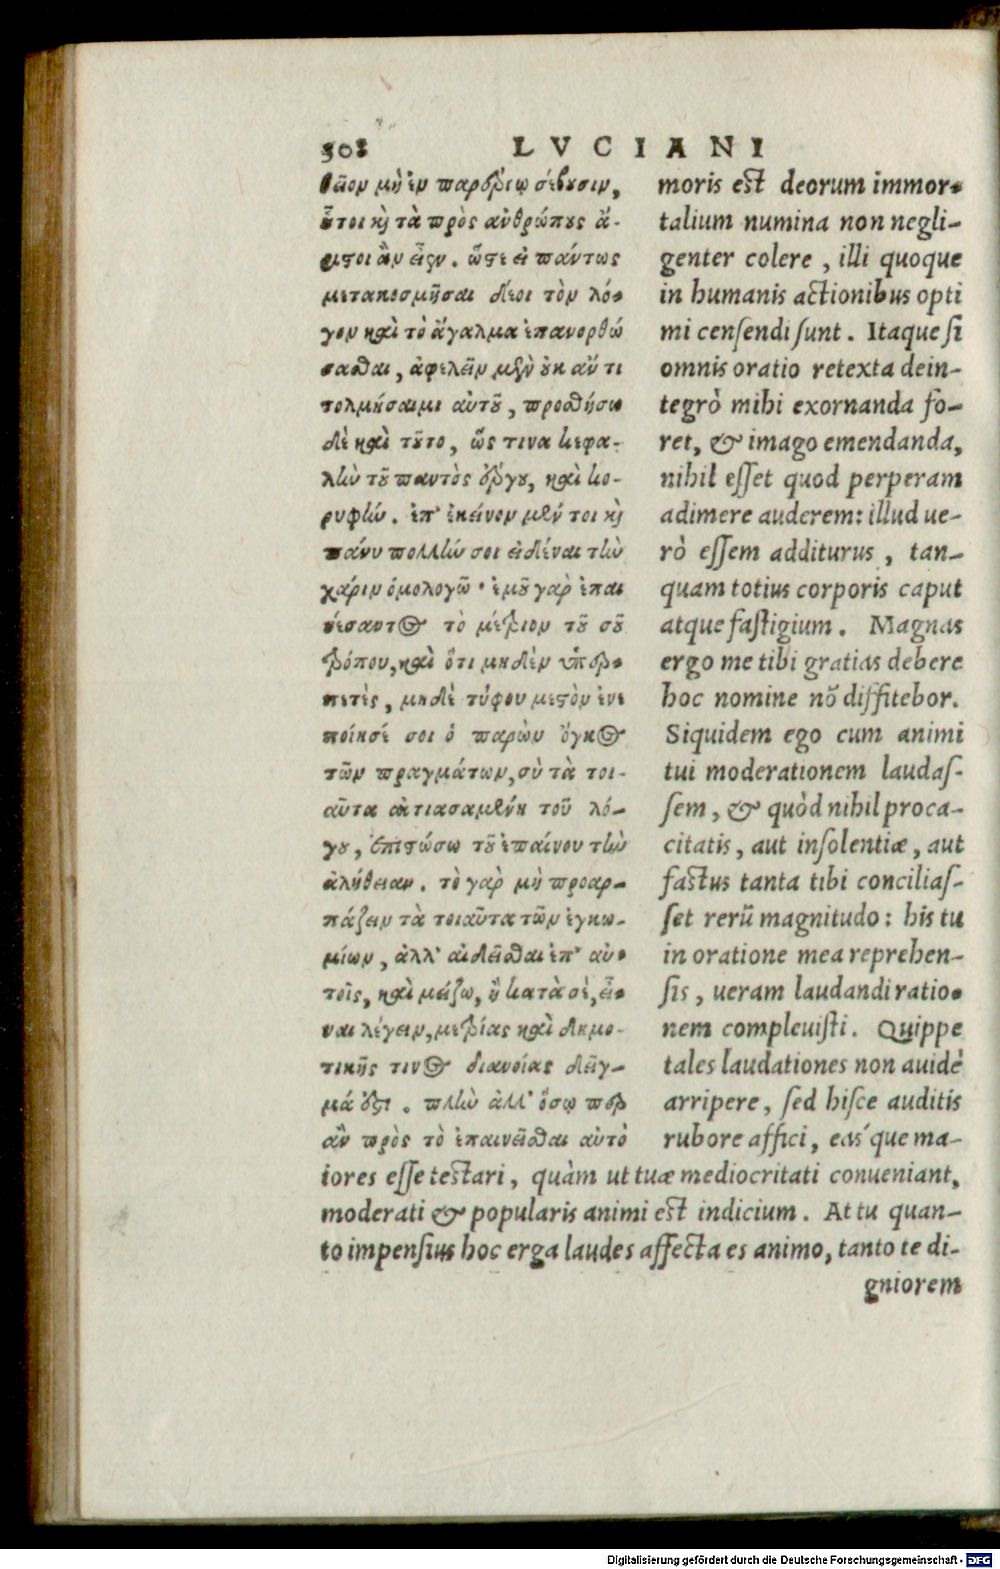 308 LVCIANI
θεῖον μὴ ἐν παρέργῳ σέβουσιν,
οὗτοι καὶ τὰ πρὸς ἀνθρώπους ἄ-
ριστοι ἂν εἶεν. ὥστε εἰ πάντως
μετακοσμῆσαι δέοι τὸν λό-
γον καὶ τὸ ἄγαλμα ἐπανορθώ
σασθαι, ἀφελεῖν μὲν οὐκ ἄν τι
τολμήσαιμι αὐτοῦ, προσθήσω
δὲ καὶ τοῦτο, ὥς τινα κεφα-
λὴν τοῦ παντὸς ἔργου, καὶ κο-
ρυφήν. ἐπ' ἐκείνου μέν τοι καὶ
πάνυ πολλήν σοι εἰδέναι τὴν
χάριν ὁμολογῶ· ἐμοῦ γὰρ ἐπαι
νέσαντος τὸ μέτριον τοῦ σοῦ
τρόπου, καὶ ὅτι μηδὲν ὑπερ-
πετὲς, μηδὲ τύφου μεστὸν ἐνε
ποίησέ σοι ὁ παρὼν ὄγκος
τῶν πραγμάτων, σὺ τὰ τοι-
αῦτα αἰτιασαμένη τοῦ λό-
γου, ἐπιστώσω τοῦ ἐπαίνου τὴν
ἀλήθειαν. τὸ γὰρ μὴ προαρ-
πάζειν τὰ τοιαῦτα τῶν ἐγκω-
μίων, ἀλλ' αἰδεῖσθαι ἐπ' αὐ-
τοῖς, καὶ μείζω, ἢ κατὰ σὲ, εἶ-
ναι λέγειν, μετρίας καὶ δημο-
τικῆς τινος διανοίας δεῖγ-
μά ἐστι. πλὴν ἀλλ' ὅσῳ περ
ἂν πρὸς τὸ ἐπαινεῖσθαι αὐτὸ
moris est deorum immor-
talium numina non negli-
genter colere, illi quoque
in humanis actionibus opti
mi censendi sunt. Itaque si
omnis oratio retexta dein-
tegrò mihi exornanda fo-
ret, & imago emendanda,
nihil esset quod perperam
adimere auderem: illud ue-
rò essem additurus, tan-
quam totius corporis caput
atque fastigium. Magnas
ergo me tibi gratias debere
hoc nomine nõ diffitebor.
Siquidem ego cum animi
tui moderationem laudas-
sem, & quòd nihil proca-
citatis, aut insolentiæ, aut
fastus tanta tibi concilias-
set rerũ magnitudo: his tu
in oratione mea reprehen-
sis, ueram laudandi ratio-
nem compleuisti. Quippe
tales laudationes non auidè
arripere, sed hisce auditis
rubore affici, eas'que ma-
iores esse testari, quàm ut tuæ mediocritati conueniant,
moderati & popularis animi est indicium. At tu quan-
to impensius hoc erga laudes affecta es animo, tanto te di-
gniorem
Digitalisierung gefördert durch die Deutsche Forschungsgemeinschaft - DFG